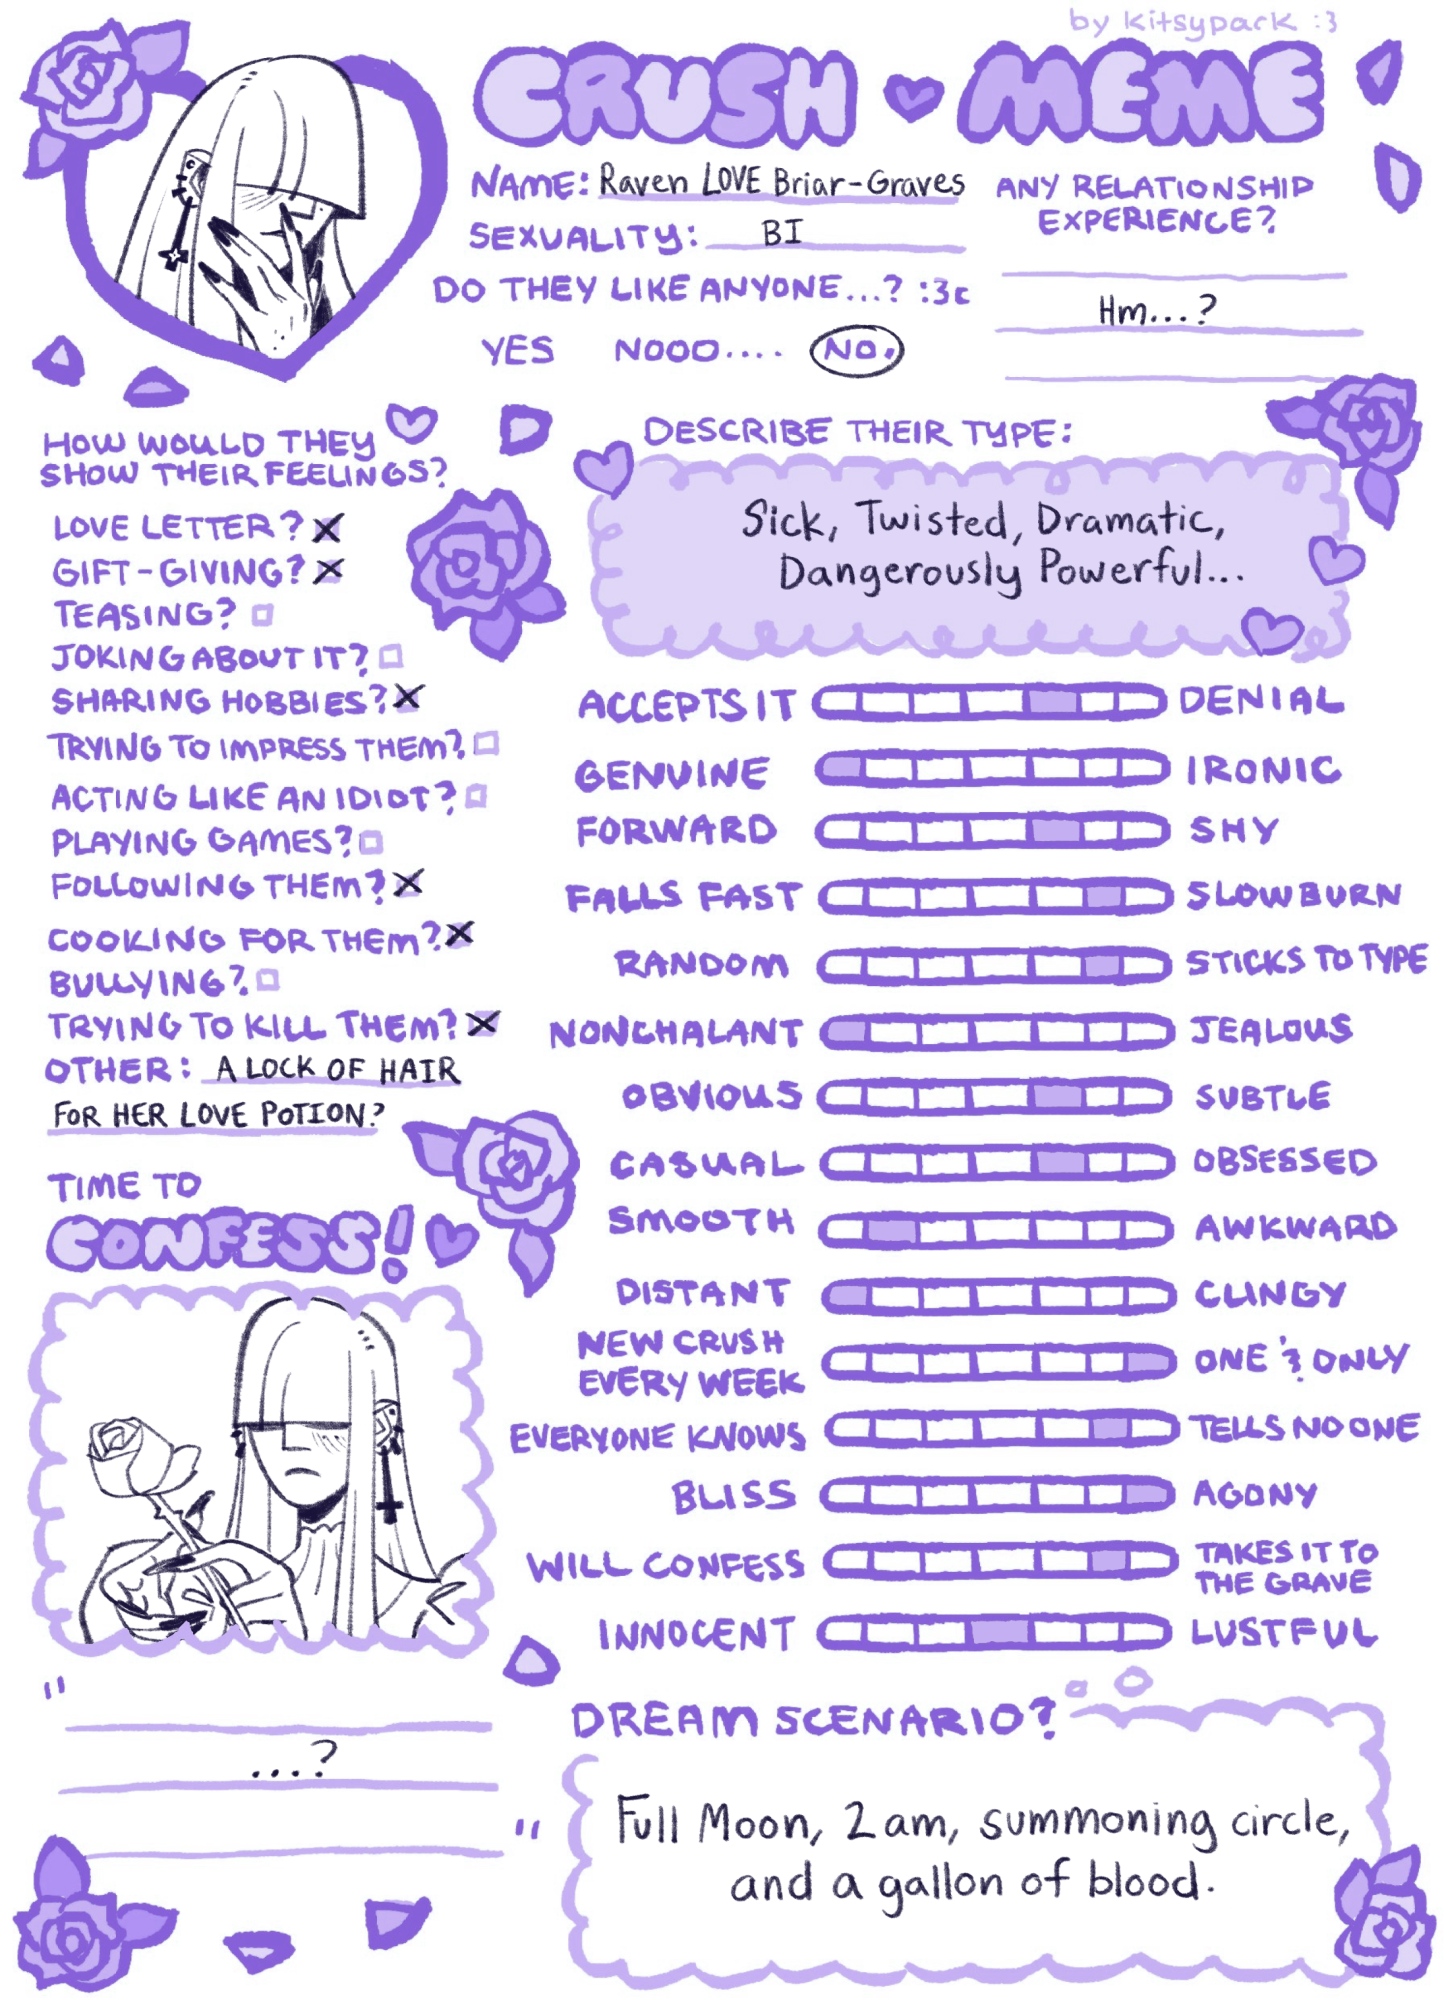 by kitsypack :3
CRUSH MEME
NAME: Raven LOVE Briar-Graves
SEXUALITY: BI
DO THEY LIKE ANYONE...? :3c
YES NOOO.... NO.
ANY RELATIONSHIP
EXPERIENCE?
Hm...?
HOW WOULD THEY
SHOW THEIR FEELINGS?
LOVE LETTER?
GIFT-GIVING?
TEASING?
JOKING ABOUT IT?
SHARING HOBBIES?
TRYING TO IMPRESS THEM?
ACTING LIKE AN IDIOT?
PLAYING GAMES?
FOLLOWING THEM?
COOKING FOR THEM?
BULLYING?
TRYING TO KILL THEM?
OTHER: A LOCK OF HAIR
FOR HER LOVE POTION?
DESCRIBE THEIR TYPE:
Sick, Twisted, Dramatic,
Dangerously Powerful...
ACCEPTS IT DENIAL
GENUINE IRONIC
FORWARD SHY
FALLS FAST SLOWBURN
RANDOM STICKS TO TYPE
NONCHALANT JEALOUS
OBVIOUS SUBTLE
CASUAL OBSESSED
SMOOTH AWKWARD
DISTANT CLINGY
NEW CRUSH
EVERY WEEK ONE & ONLY
EVERYONE KNOWS TELLS NO ONE
BLISS AGONY
WILL CONFESS TAKES IT TO
THE GRAVE
INNOCENT LUSTFUL
TIME TO
CONFESS!
"
...?
"
DREAM SCENARIO?
Full Moon, 2am, summoning circle,
and a gallon of blood.